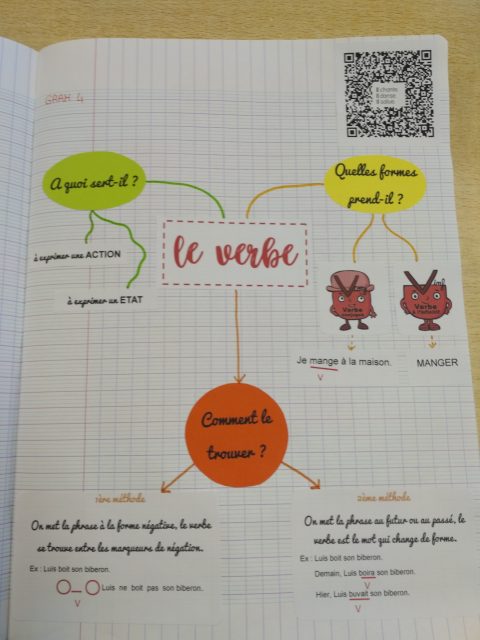 GRAM 4
Il chante
Il danse
Il salue
A quoi sert-il ?
Quelles formes
prend-il ?
à exprimer une ACTION
à exprimer un ETAT
le verbe
Verbe
conjugué
Verbe
à l'infinitif
Je mange à la maison.
V
MANGER
Comment le
trouver ?
1ère méthode
On met la phrase à la forme négative, le verbe
se trouve entre les marqueurs de négation.
Ex : Luis boit son biberon.
Luis ne boit pas son biberon.
V
2ème méthode
On met la phrase au futur ou au passé, le
verbe est le mot qui change de forme.
Ex : Luis boit son biberon.
Demain, Luis boira son biberon.
V
Hier, Luis buvait son biberon.
V